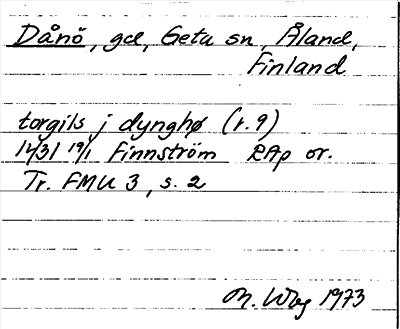 Dånö, gd, Geta sn, Åland,
Finland
torgils j dynghø (r. 9)
1431 19/1 Finnström RAp or.
Tr. FMU 3, s. 2
M. Wbg 1973